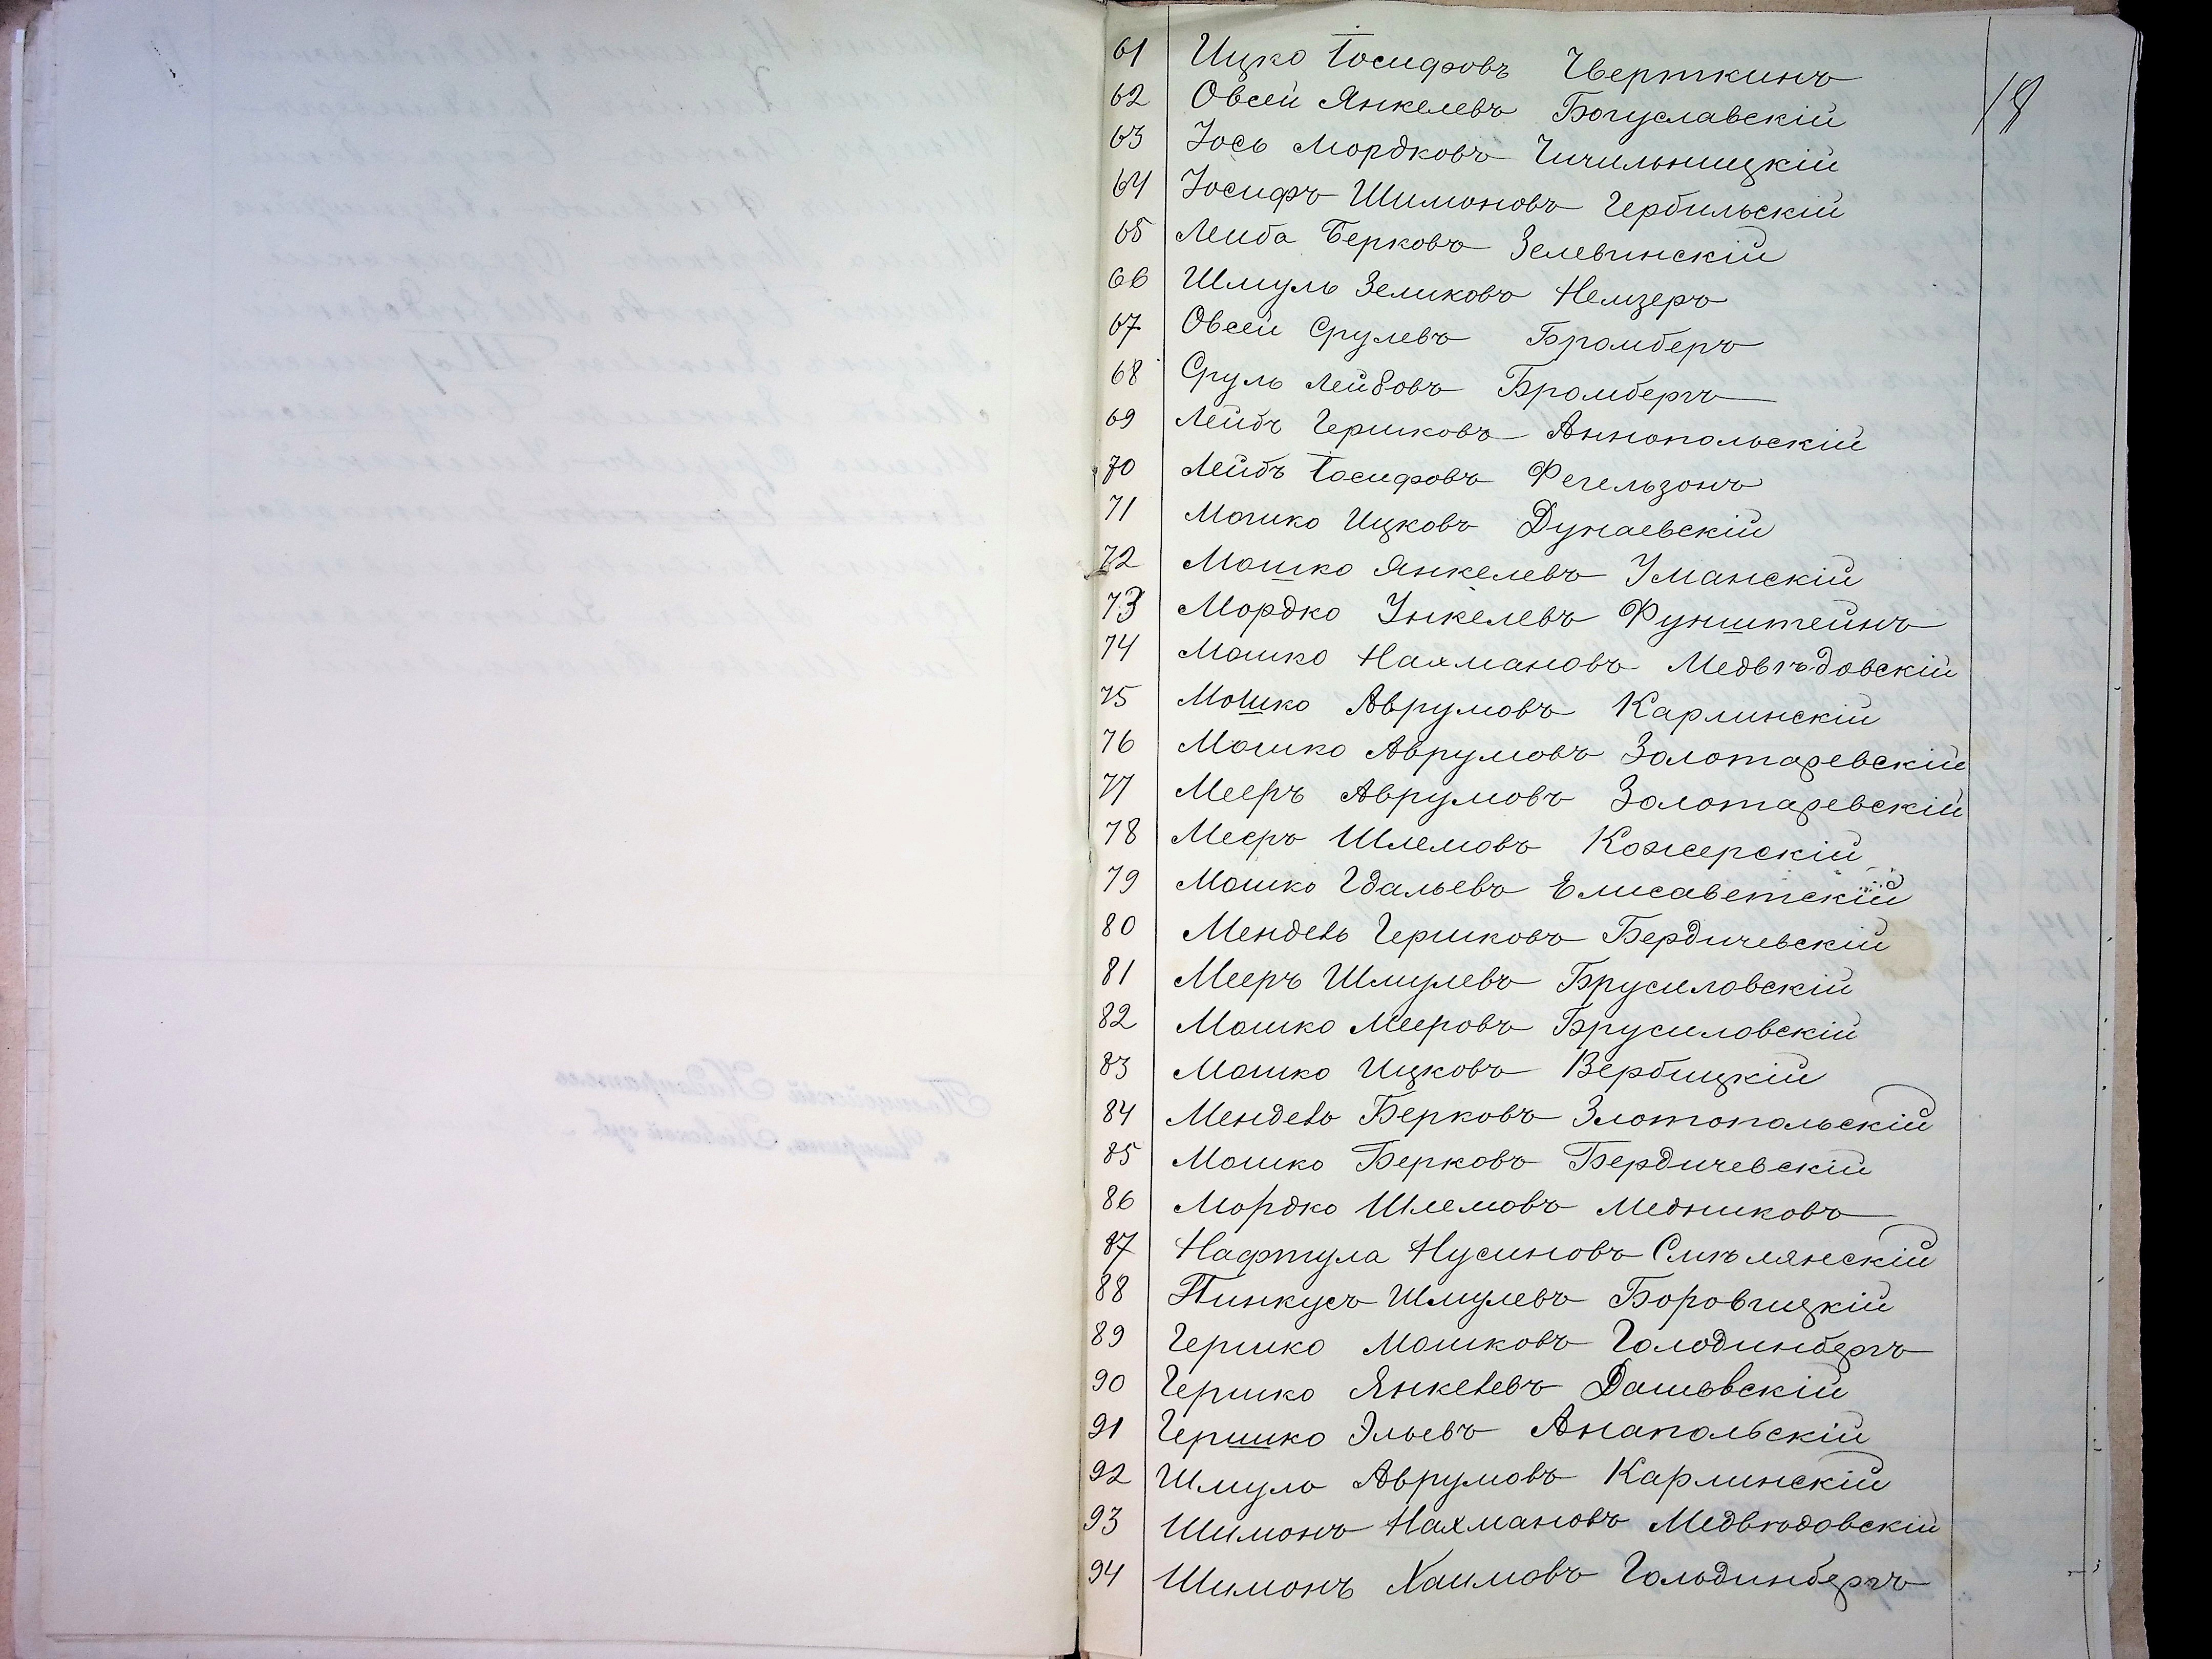 18
61 Ицко Іосифовъ Чверткинъ
62 Овсей Янкелевъ Богуславскій
63 Іось Мордковъ Чичильницкій
64 Іосифъ Шимоновъ Гербильскій
65 Лейба Берковъ Зелевинскій
66 Шмуль Зеликовъ Немзеръ
67 Овсей Срулевъ Бромберъ
68 Сруль Лейбовъ Бромбергъ
69 Лейбъ Гершковъ Аннопольскій
70 Лейбъ Іосифовъ Фегельзонъ
71 Мошко Ицковъ Дунаевскій
72 Мошко Янкелевъ Уманскій
73 Мордко Ункелевъ Фунштейнъ
74 Мошко Нахмановъ Медвѣдовскій
75 Мошко Аврумовъ Карлинскій
76 Мошко Аврумовъ Золотаревскій
77 Мееръ Аврумовъ Золотаревскій
78 Мееръ Шлемовъ Кожерскій
79 Мошко Гдальевъ Елисаветскій
80 Мендель Гершковъ Бердичевскій
81 Мееръ Шмулевъ Брусиловскій
82 Мошко Мееровъ Брусиловскій
83 Мошко Ицковъ Вербицкій
84 Мендель Берковъ Злотопольскій
85 Мошко Берковъ Бердичевскій
86 Мордко Шлемовъ Медниковъ
87 Нафтула Нусиновъ Смѣлянскій
88 Пинкусъ Шмулевъ Боровицкій
89 Гершко Мошковъ Голодинбергъ
90 Гершко Янкелевъ Дашевскій
91 Гершко Эльевъ Анапольскій
92 Шмуль Аврумовъ Карлинскій
93 Шимонъ Нахмановъ Медвѣдовскій
94 Шимонъ Хаимовъ Гольдинбергъ